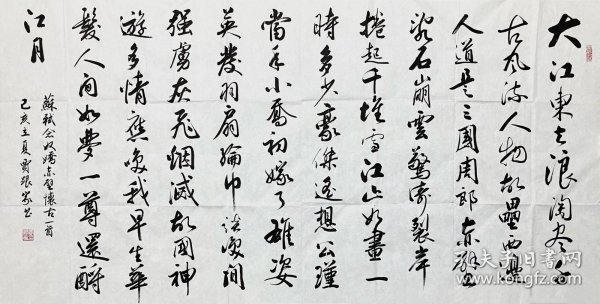 大江東去浪淘尽千
古風流人物故壘西邊
人道是三國周郎赤壁
乱石崩雲驚濤裂岸
捲起千堆雪江山如畫一
時多少豪傑遙想公瑾
當年小喬初嫁了雄姿
英發羽扇綸巾談笑間
强虜灰飛烟滅故國神
遊多情應笑我早生華
髮人间如夢一尊還酹
江月
蘇軾念奴嬌赤壁懷古一首
己亥立夏
kongfz.com